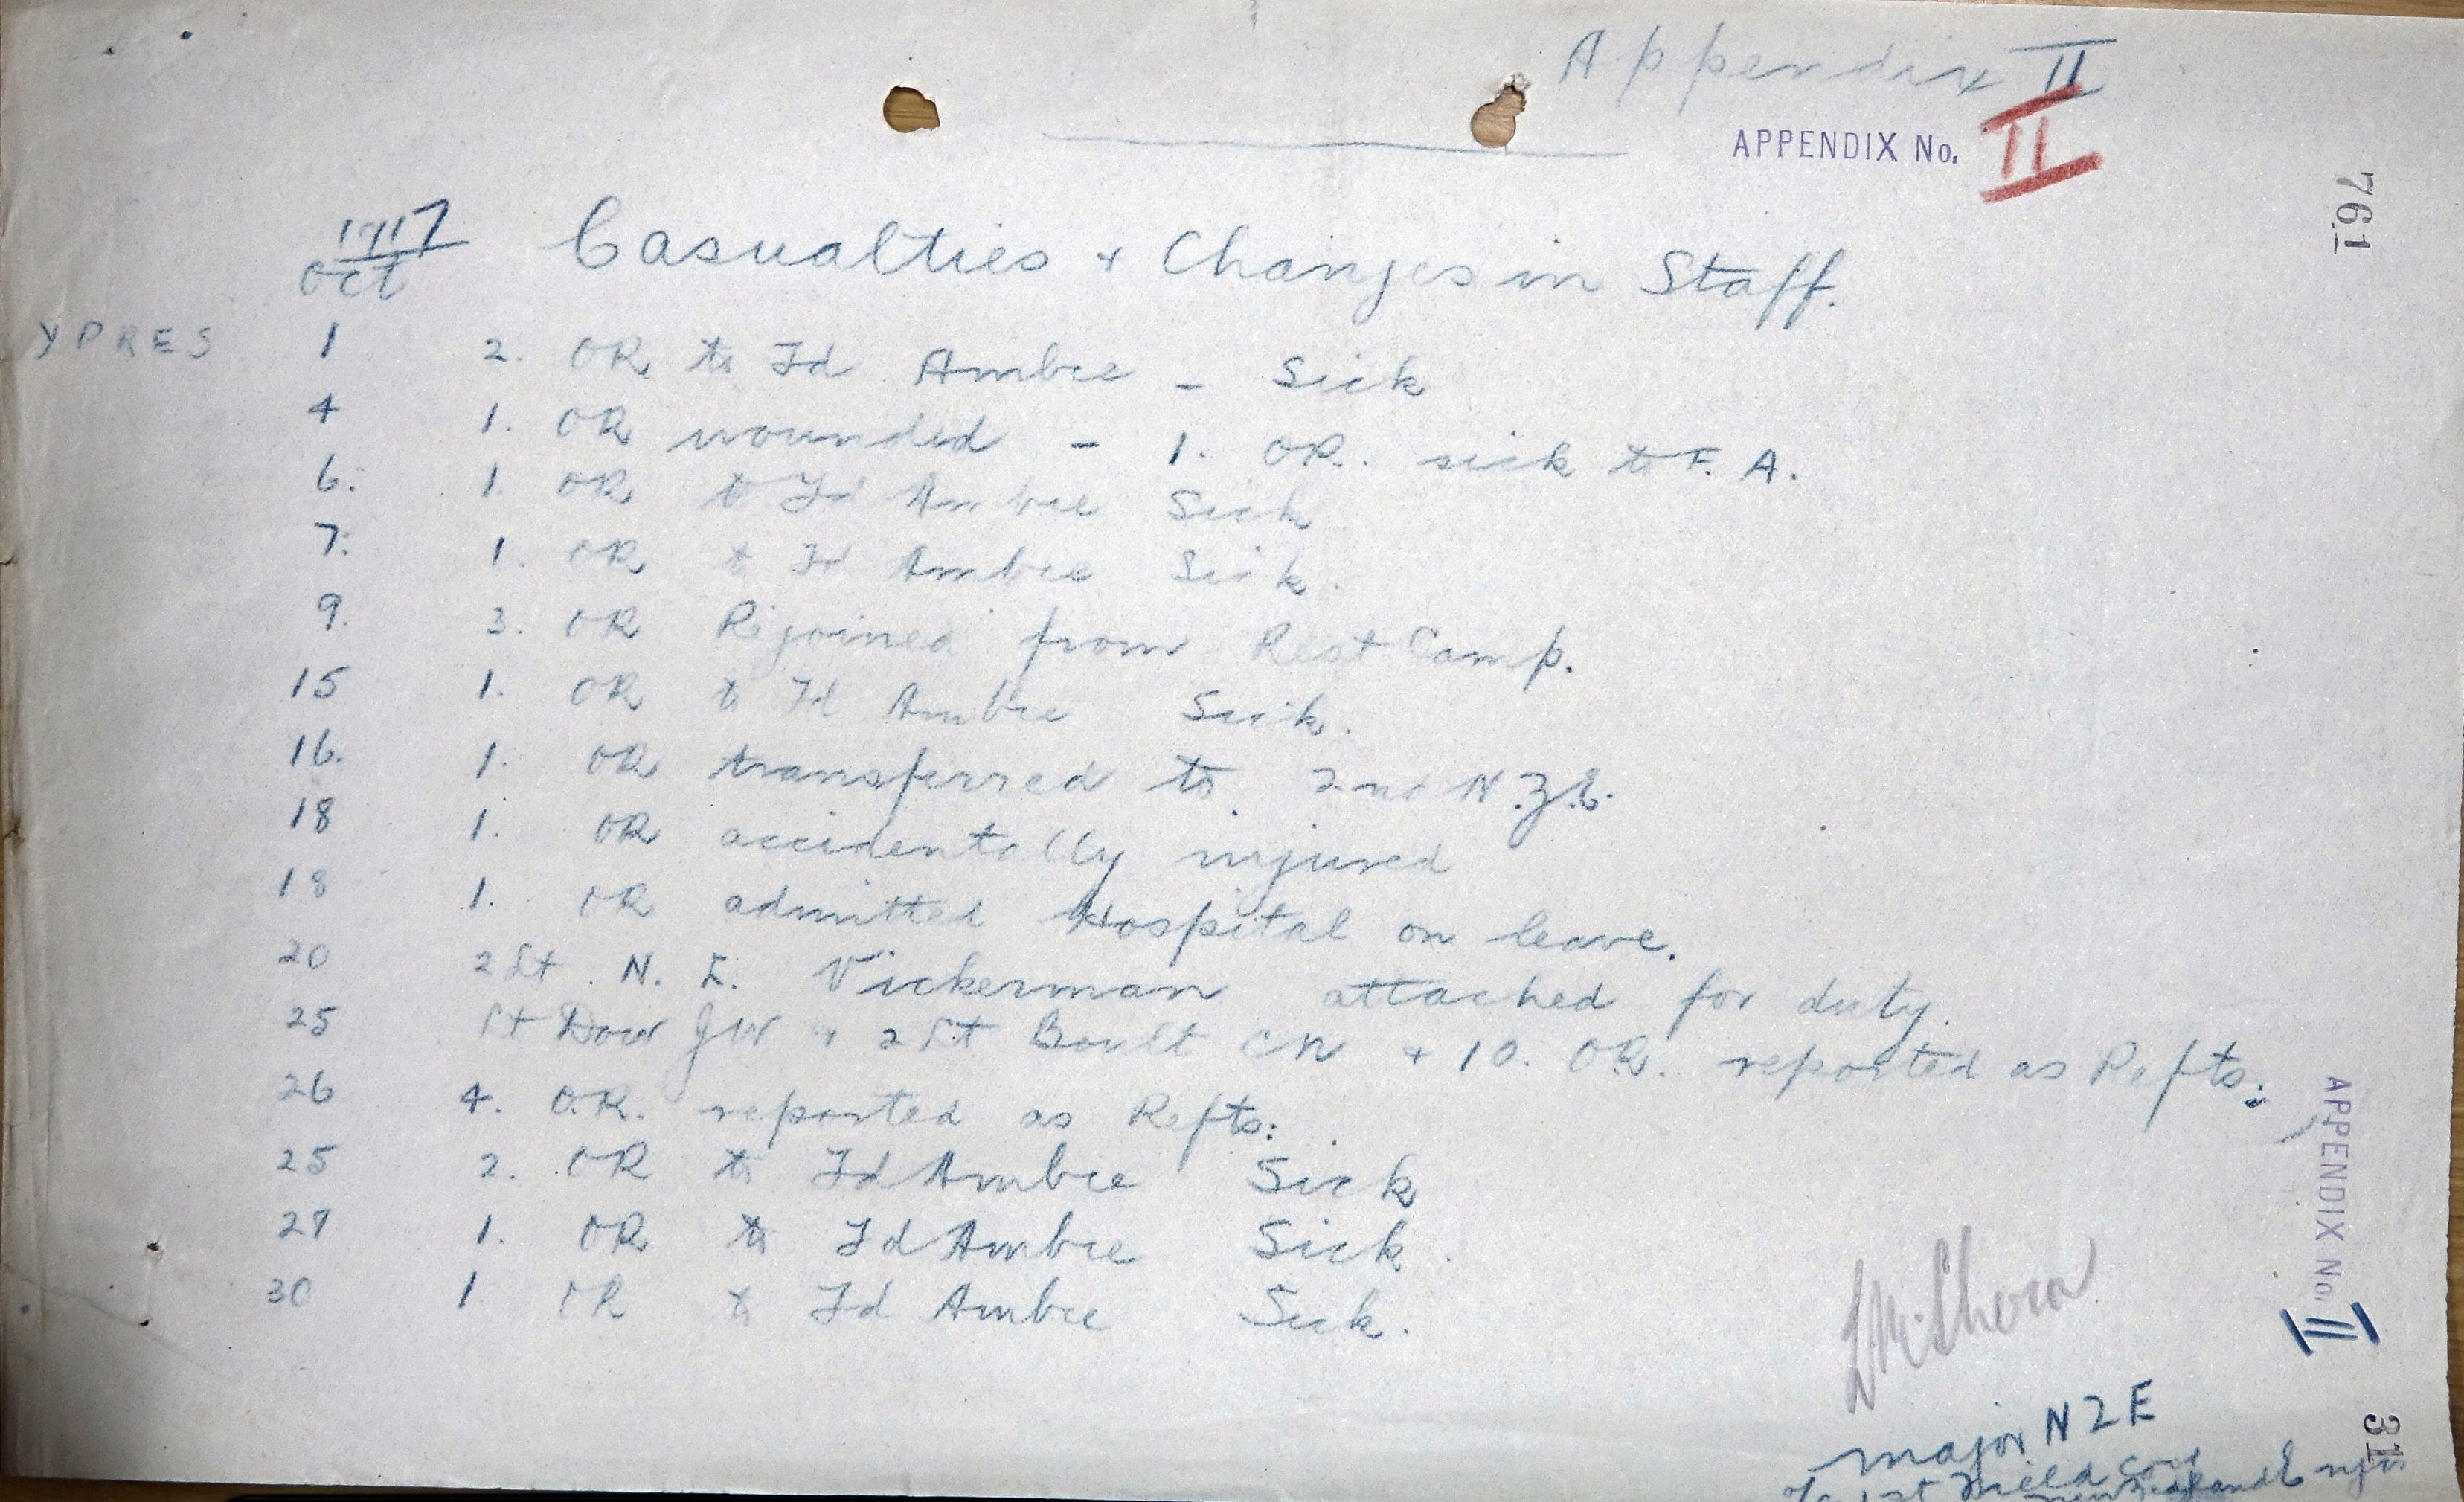 Appendix II
APPENDIX No. II
761
1917
Oct
Casualties + Changes in Staff.
YPRES 1 2. OR to Fd Ambce - Sick
4 1. OR wounded - 1. OR. sick to F. A.
6. 1. OR to Fd Ambce Sick
7. 1. OR to Fd Ambce Sick.
9. 3. OR Rejoined from Rest Camp.
15 1. OR to Fd Ambce Sick.
16. 1. OR transferred to 2nd N.Z.E.
18 1. OR accidentally injured
18 1. OR admitted Hospital on leave.
20 2Lt N. E. Vickerman attached for duty.
25 Lt Dow JW + 2Lt Boult CN + 10. OR. reported as Refts:
26 4. O.R. reported as Refts:
25 2. OR to Fd Ambce Sick
27 1. OR to Fd Ambce Sick.
30 1 OR to Fd Ambce Sick.
APPENDIX No. II
Major NZE
1st Field Coy
31